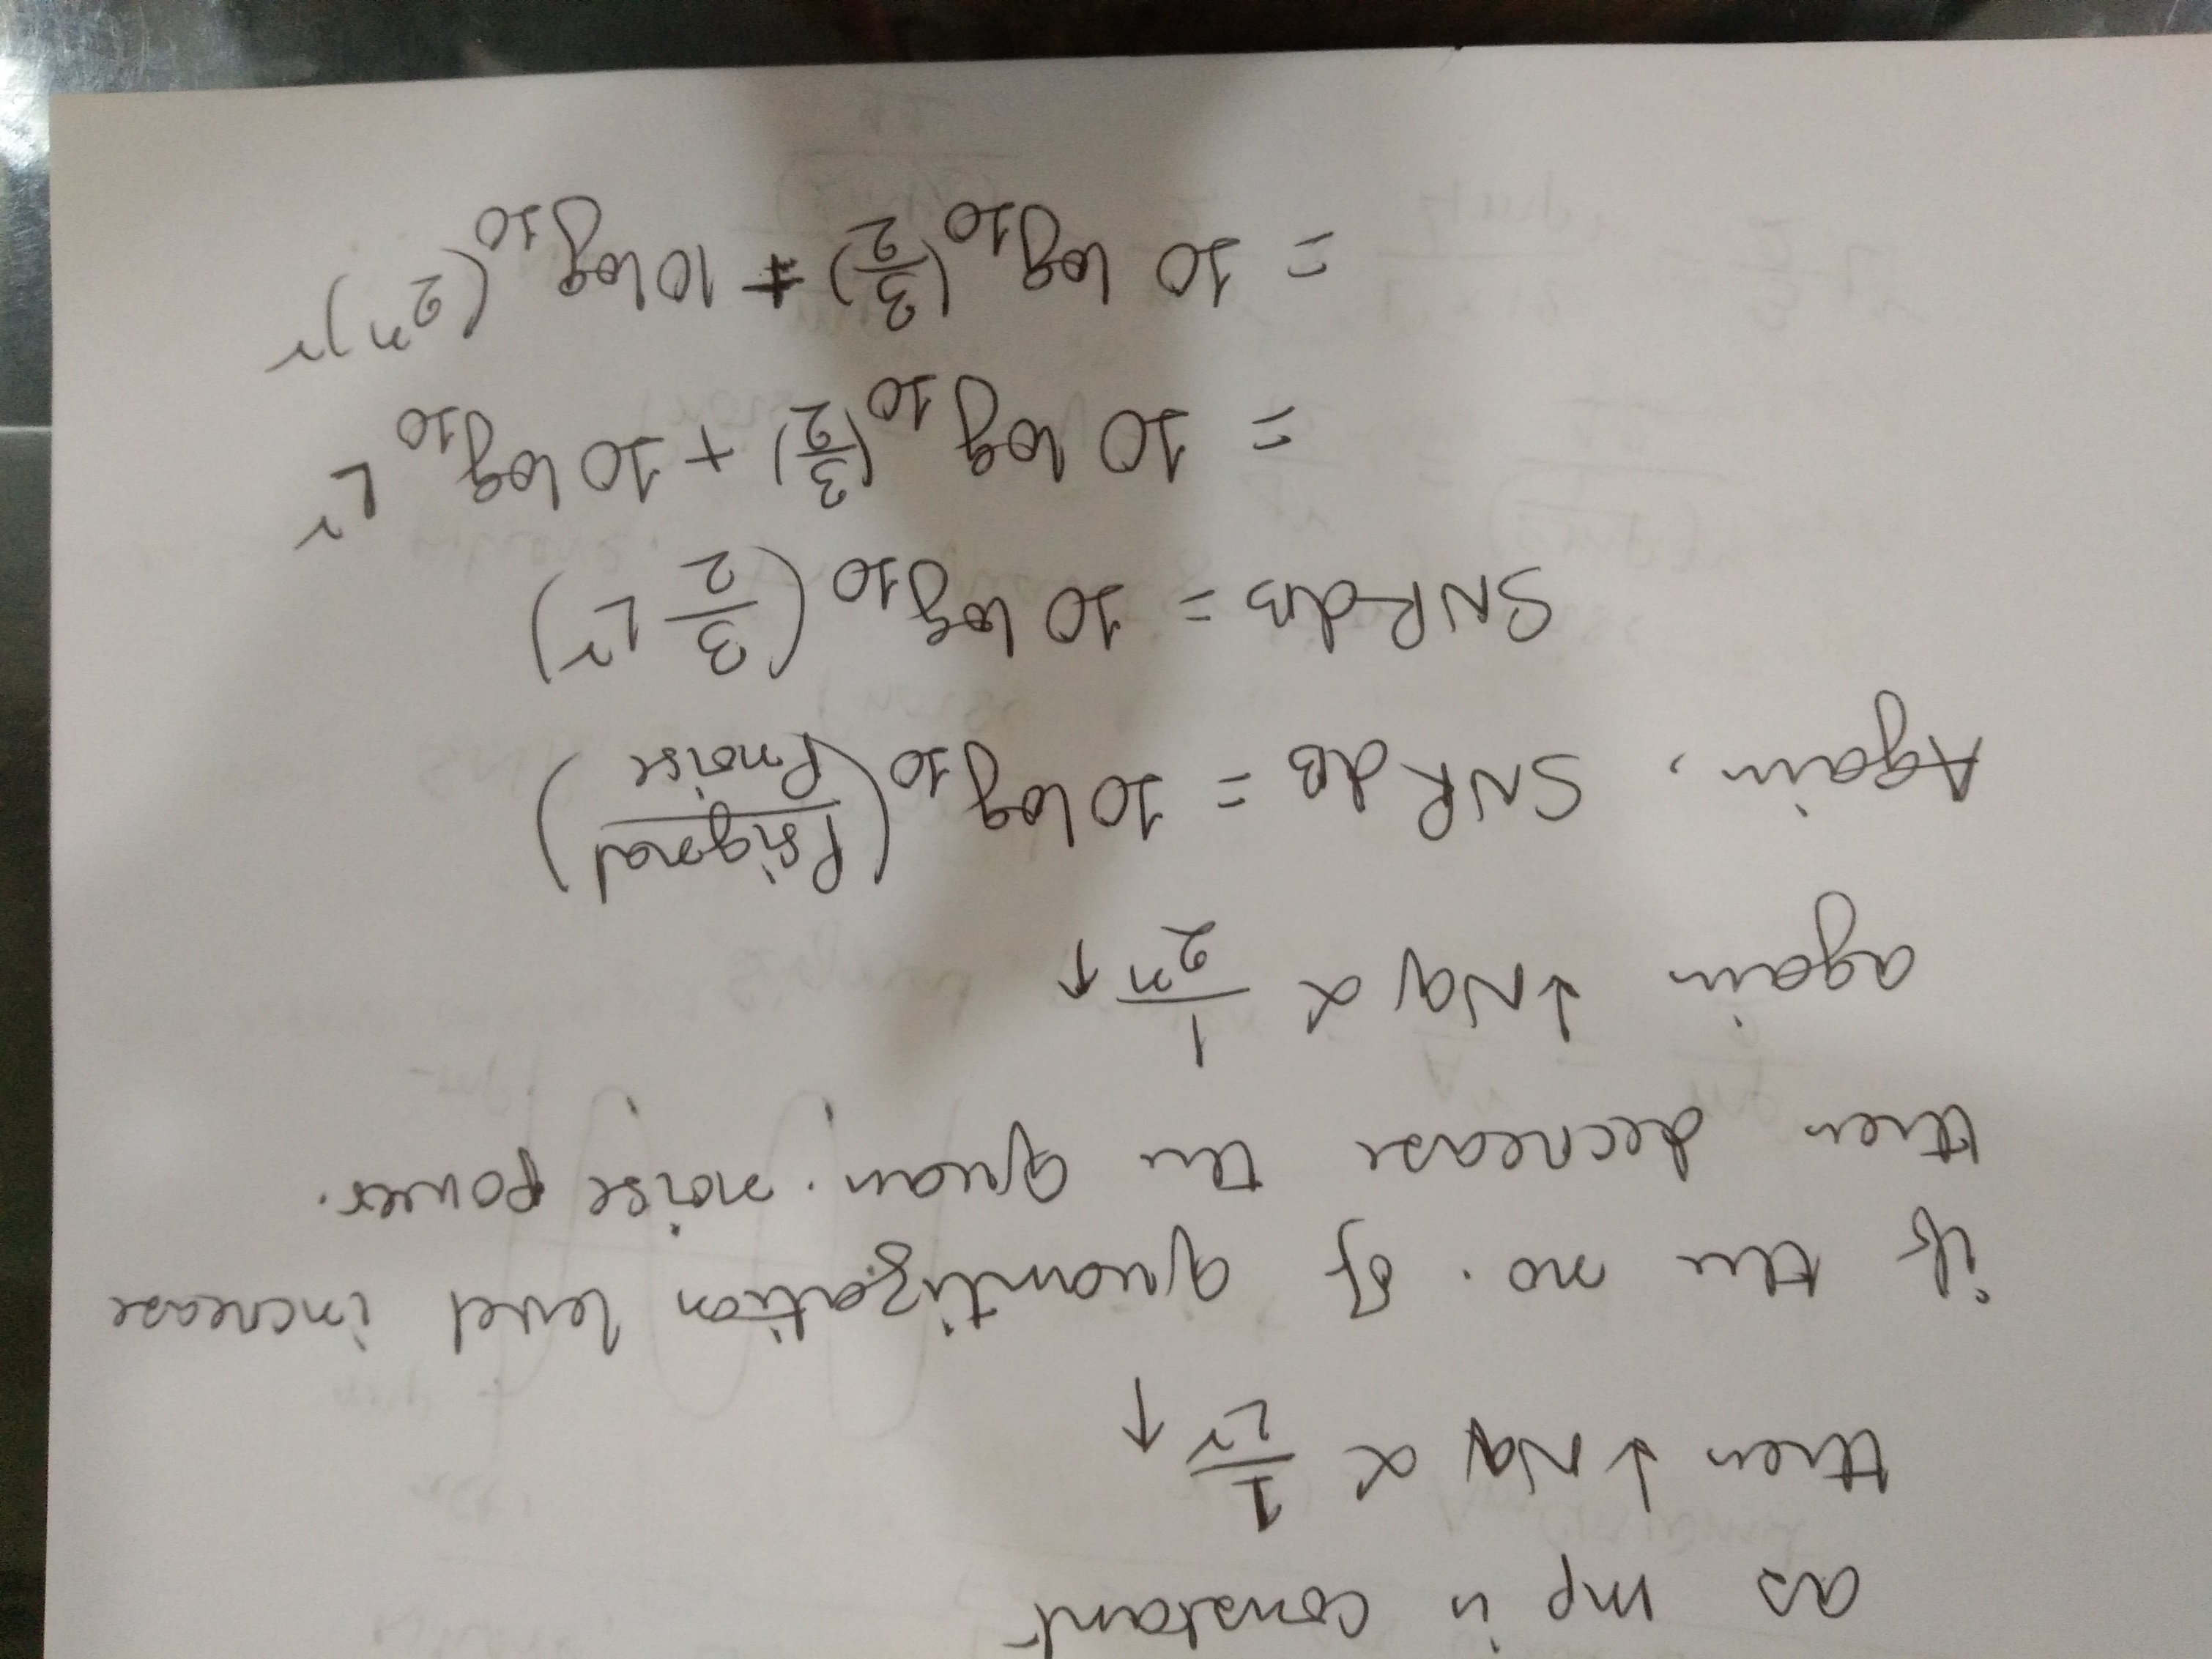 as mp is constant
then ↓Nq ∝ 1/L² ↑
if the no. of quantization level increase
then decrease the quan. noise power.
again ↓Nq ∝ 1/2ⁿ ↑
Again, SNRdB = 10 log10 (Psignal/Pnoise)
SNRdB = 10 log10 (3/2 L²)
= 10 log10 (3/2) + 10 log10 L²
= 10 log10 (3/2) + 10 log10 (2ⁿ)²